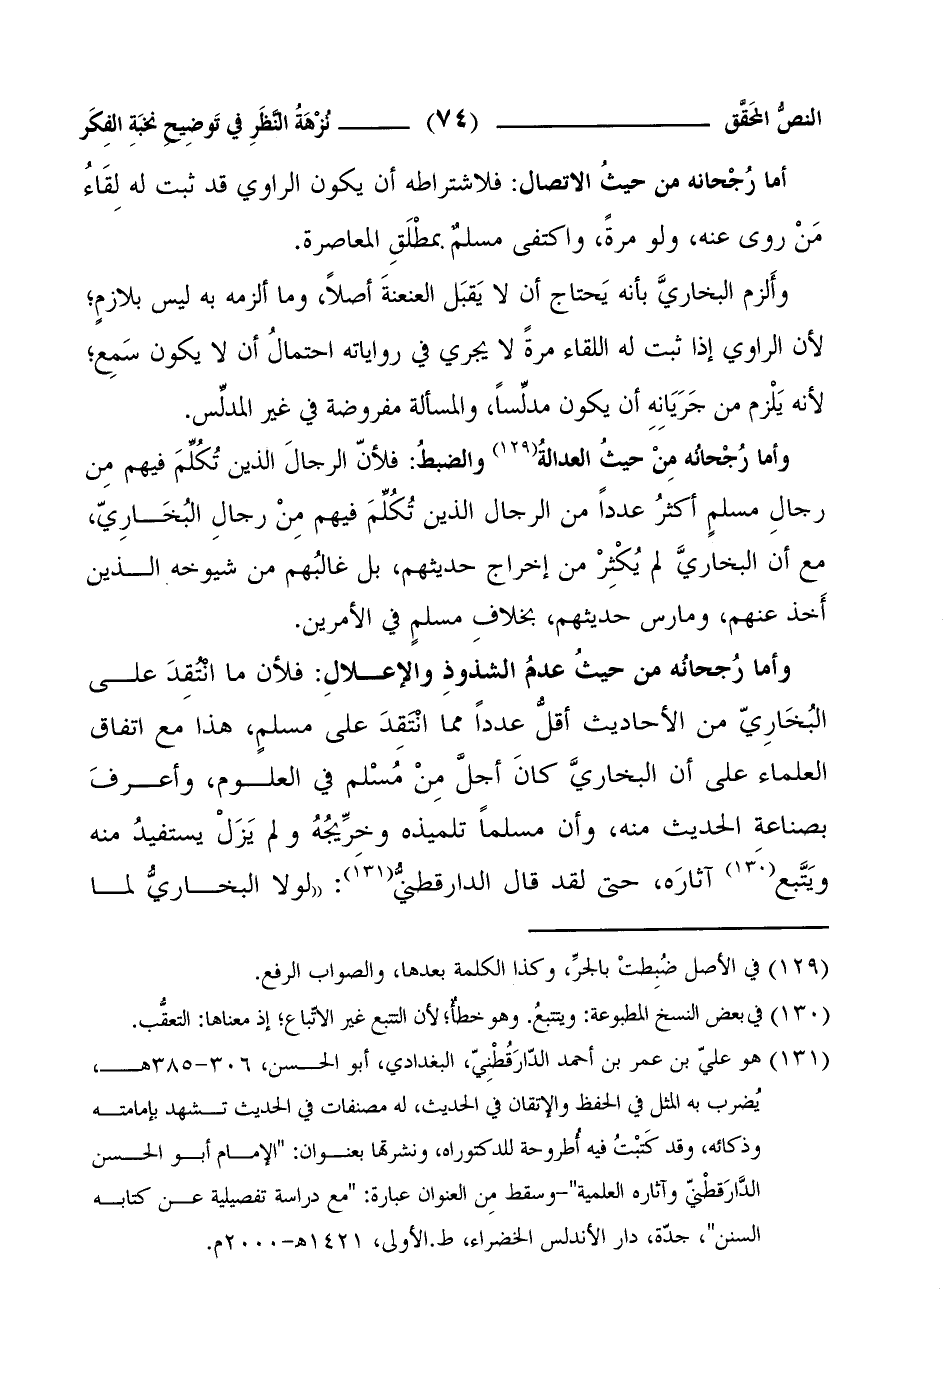 النصُّ المحَقَّق ــــــــ (٧٤) ــــــــ نُزْهَةُ النَّظَرِ في تَوضيحِ نخبَةِ الفِكَر
أما رُجْحانه من حيثُ الاتصال: فلاشتراطه أن يكون الراوي قد ثبت له لِقَاءُ
مَنْ روى عنه، ولو مرةً، واكتفى مسلمٌ بمطْلَقِ المعاصرة.
وأَلزم البخاريَّ بأنه يَحتاج أن لا يَقبَل العنعنةَ أصلاً، وما ألزمه به ليس بلازمٍ؛
لأن الراوي إذا ثبت له اللقاء مرةً لا يجري في رواياته احتمالُ أن لا يكون سَمِع؛
لأنه يَلْزم من جَرَيَانِهِ أن يكون مدلِّساً، والمسألة مفروضة في غير المدلِّس.
وأما رُجْحانُه مِنْ حيثُ العدالةُ(١٢٩) والضبطُ: فلأنّ الرجالَ الذين تُكُلِّمَ فيهم من
رجالِ مسلمٍ أكثرُ عدداً من الرجال الذين تُكُلِّمَ فيهم مِنْ رجالِ البُخَـــارِيّ،
مع أن البخاريَّ لم يُكْثِرْ من إخراج حديثهم، بل غالبُهم من شيوخه الـــذين
أَخذ عنهم، ومارس حديثهم، بخلافِ مسلمٍ في الأمرين.
وأما رُجحانُه من حيثُ عدمُ الشذوذِ والإعـــلالِ: فلأن ما انْتُقِدَ علـــى
البُخَارِيّ من الأحاديث أقلُّ عدداً مما انْتَقِدَ على مسلمٍ، هذا مع اتفاق
العلماء على أن البخاريَّ كانَ أجلَّ مِنْ مُسْلم في العلـــوم، وأعـــرفَ
بصناعةِ الحديث منه، وأن مسلماً تلميذه وخِرِّيجُهُ و لم يَزَلْ يستفيدُ منه
ويَتَّبع(١٣٠) آثارَه، حتى لقد قال الدارقطنيُّ(١٣١): «لولا البخـــاريُّ لمـــا
(١٢٩) في الأصل ضُبِطتْ بالجرِّ، وكذا الكلمة بعدها، والصواب الرفع.
(١٣٠) في بعض النسخ المطبوعة: ويتتبعُ. وهو خطأٌ؛ لأن التتبع غير الاتّباع؛ إذ معناها: التعقُّب.
(١٣١) هو عليّ بن عمر بن أحمد الدّارَقُطْنِيّ، البغدادي، أبو الحـــسن، ٣٠٦-٣٨٥هـــ،
يُضرب به المثل في الحفظ والإتقان في الحديث، له مصنفات في الحديث تـــشهد بإمامتـــه
وذكائه، وقد كَتَبْتُ فيه أُطروحة للدكتوراه، ونشرتها بعنـــوان: "الإمـــام أبـــو الحـــسن
الدَّارَقطْنِيّ وآثاره العلمية"-وسقط مِن العنوان عبارة: "مع دراسة تفصيلية عـــن كتابـــه
السنن"، جدّة، دار الأندلس الخضراء، ط.الأولى، ١٤٢١هـ-٢٠٠٠م.